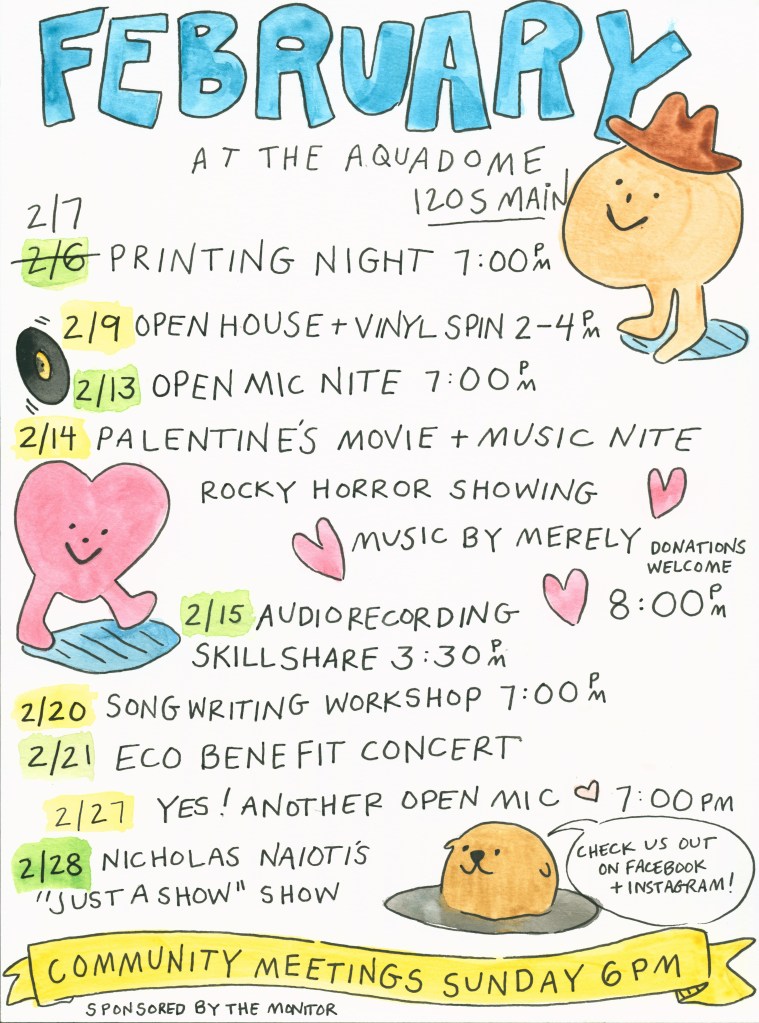 FEBRUARY
AT THE AQUADOME
120 S MAIN
2/7
2/6 PRINTING NIGHT 7:00 PM
2/9 OPEN HOUSE + VINYL SPIN 2-4 PM
2/13 OPEN MIC NITE 7:00 PM
2/14 PALENTINE'S MOVIE + MUSIC NITE
ROCKY HORROR SHOWING
MUSIC BY MERELY
DONATIONS
WELCOME
8:00 PM
2/15 AUDIO RECORDING
SKILLSHARE 3:30 PM
2/20 SONGWRITING WORKSHOP 7:00 PM
2/21 ECO BENEFIT CONCERT
2/27 YES! ANOTHER OPEN MIC 7:00 PM
2/28 NICHOLAS NAIOTI'S
"JUST A SHOW" SHOW
CHECK US OUT
ON FACEBOOK
+ INSTAGRAM!
COMMUNITY MEETINGS SUNDAY 6PM
SPONSORED BY THE MONITOR